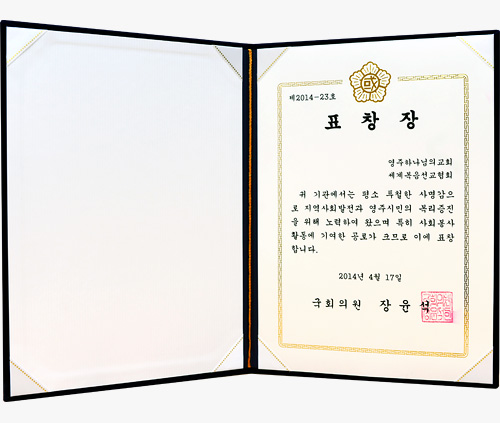 제2014-23호
표 창 장
영주하나님의교회
세계복음선교협회
위 기관에서는 평소 투철한 사명감으
로 지역사회발전과 영주시민의 복리증진
을 위해 노력하여 왔으며 특히 사회봉사
활동에 기여한 공로가 크므로 이에 표창
합니다.
2014년 4월 17일
국회의원 장 윤 석